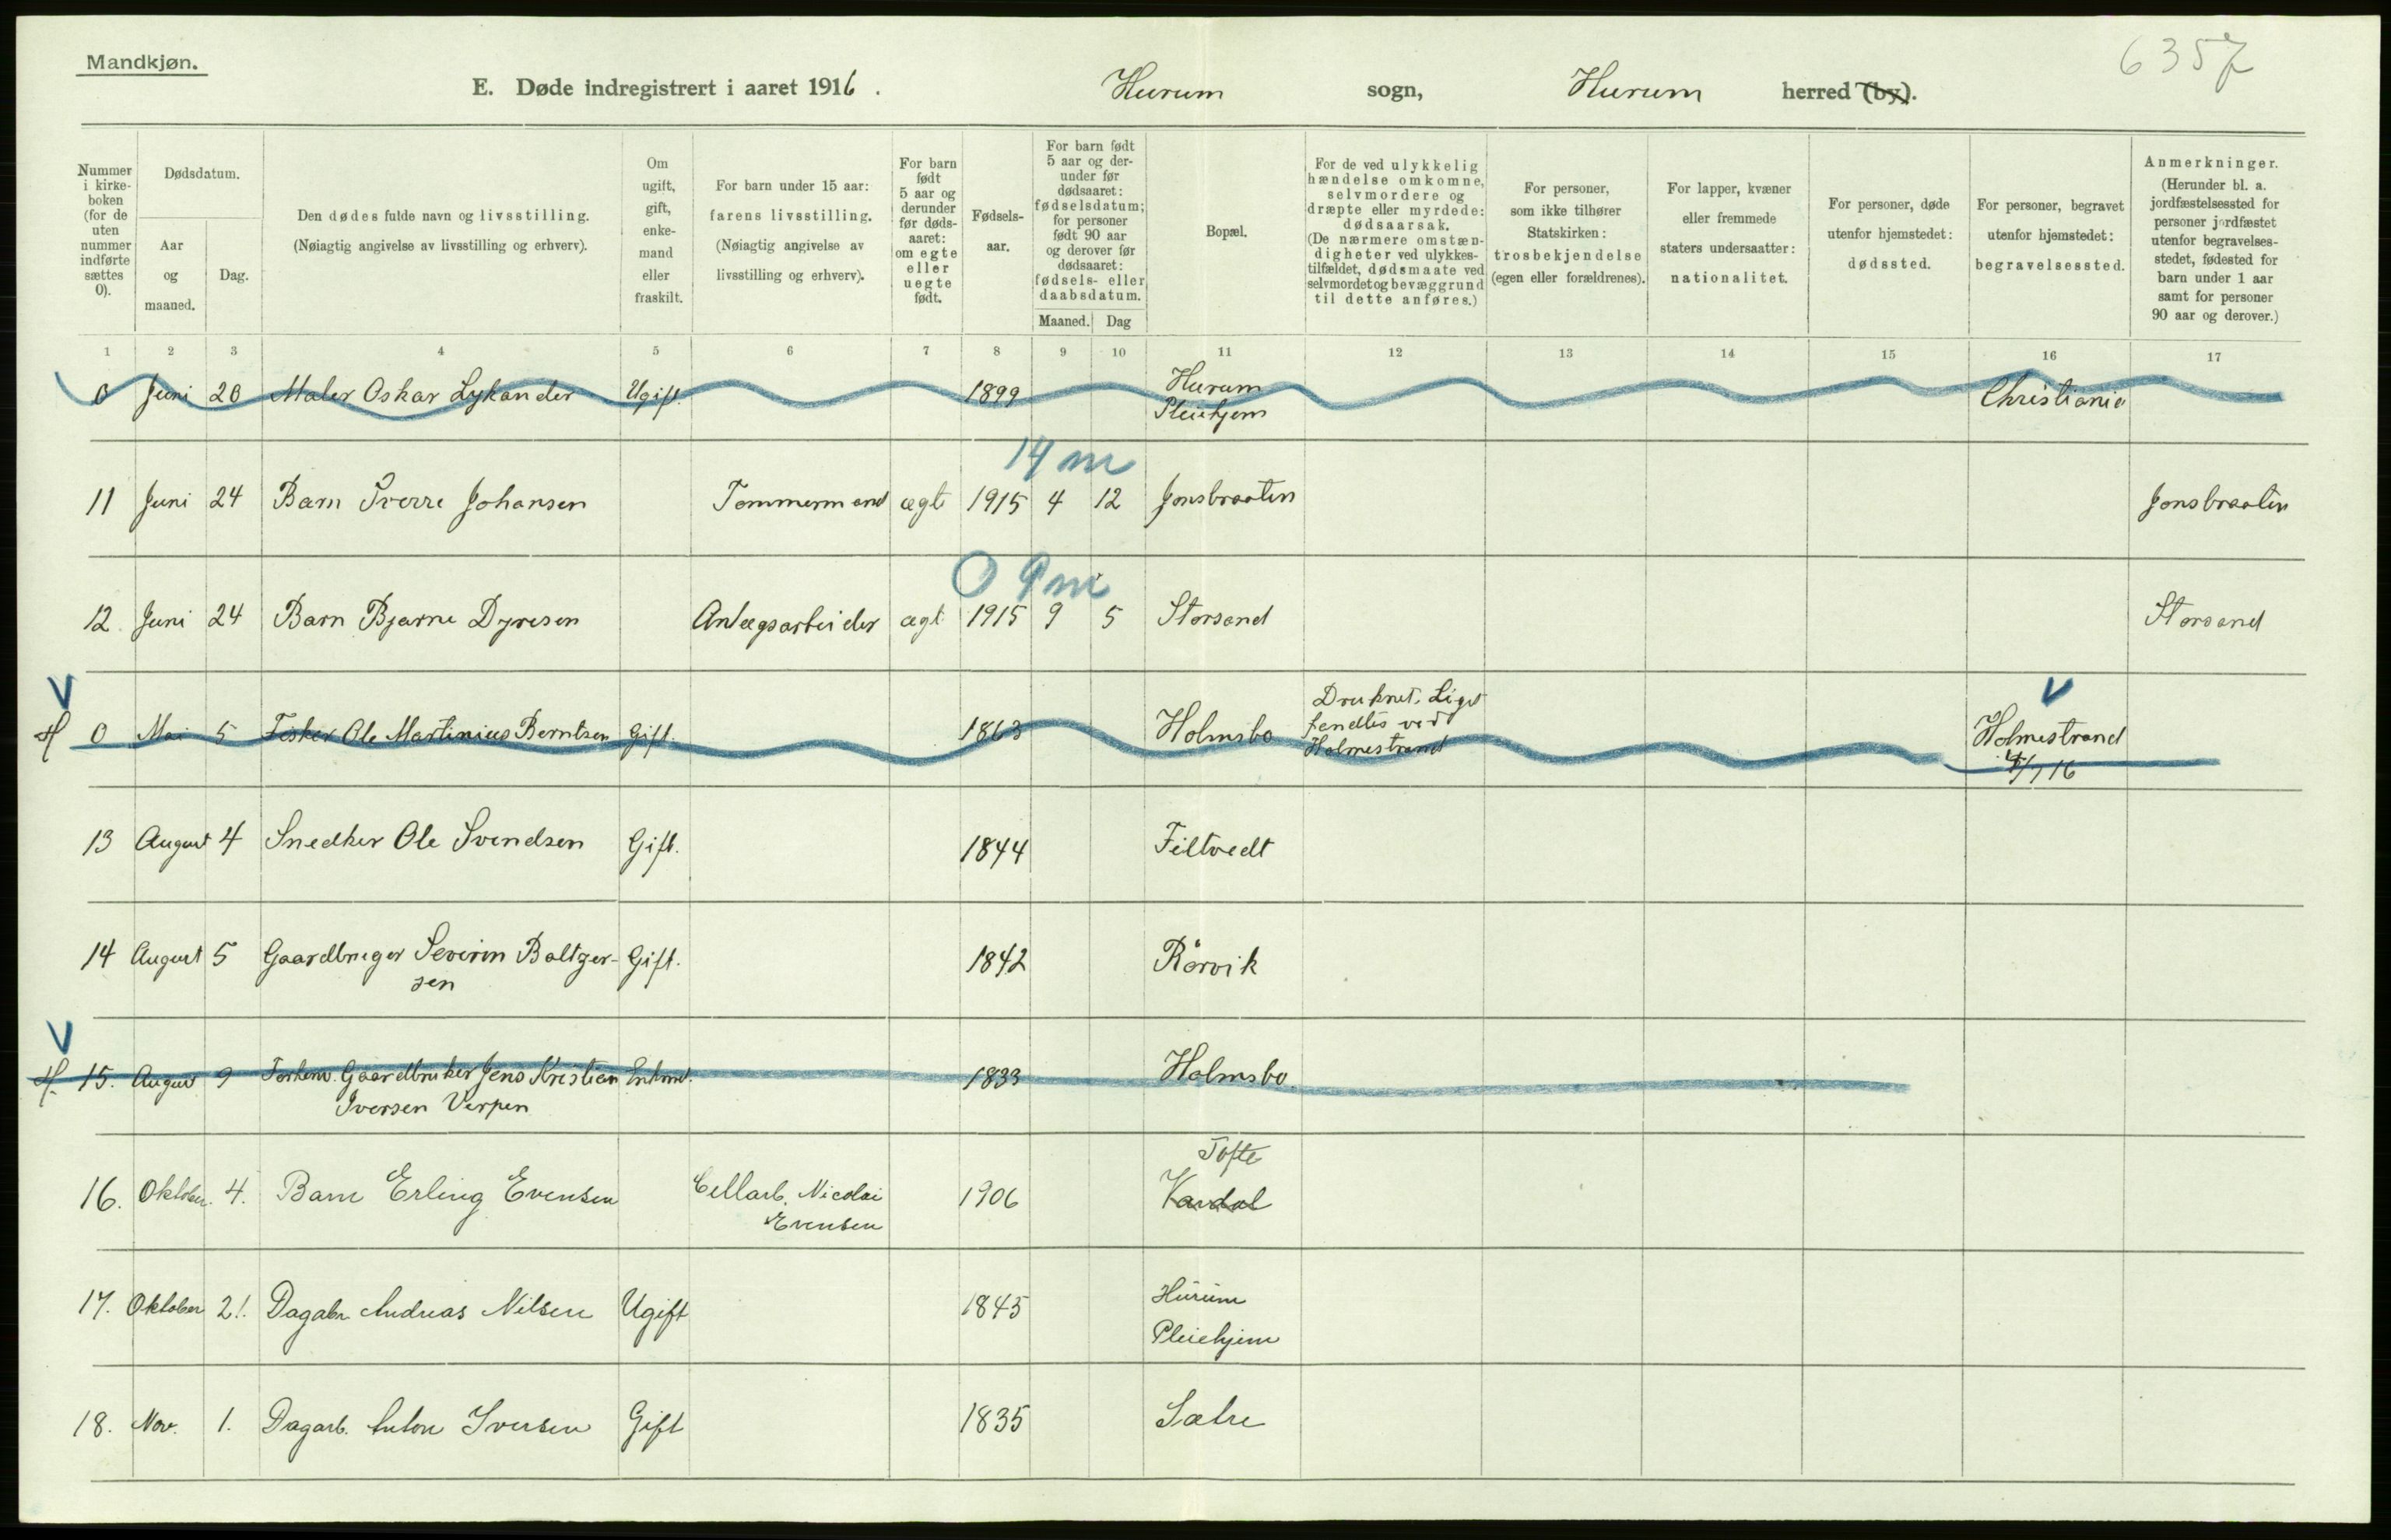 Mandkjøn.
6357
E. Døde indregistrert i aaret 1916. Hurum sogn, Hurum herred (by).
Nummer i kirkeboken (for de uten nummer indførte sættes 0).
Dødsdatum.
Aar og maaned.
Dag.
Den dødes fulde navn og livsstilling.
(Nøiagtig angivelse av livsstilling og erhverv).
Om ugift, gift, enkemand eller fraskilt.
For barn under 15 aar: farens livsstilling.
(Nøiagtig angivelse av livsstilling og erhverv).
For barn født 5 aar og derunder før dødsaaret: om egte eller uegte født.
Fødselsaar.
For barn født 5 aar og derunder før dødsaaret: fødselsdatum; for personer født 90 aar og derover før dødsaaret: fødsels- eller daabsdatum.
Maaned. Dag
Bopæl.
For de ved ulykkelig hændelse omkomne, selvmordere og dræpte eller myrdede: dødsaarsak.
(De nærmere omstændigheter ved ulykkestilfældet, dødsmaate ved selvmordet og bevæggrund til dette anføres.)
For personer, som ikke tilhører Statskirken: trosbekjendelse (egen eller forældrenes).
For lapper, kvæner eller fremmede staters undersaatter: nationalitet.
For personer, døde utenfor hjemstedet: dødssted.
For personer, begravet utenfor hjemstedet: begravelsessted.
Anmerkninger.
(Herunder bl. a. jordfæstelsessted for personer jordfæstet utenfor begravelsesstedet, fødested for barn under 1 aar samt for personer 90 aar og derover.)
1 2 3 4 5 6 7 8 9 10 11 12 13 14 15 16 17
0 Juni 20 Maler Oskar Lykander Ugift. 1899 Hurum Pleiehjem Christiania
14 m
11 Juni 24 Barn Sverre Johansen Tommermand ægte 1915 4 12 Jonsbraaten Jonsbraaten
0 9 m
12. Juni 24 Barn Bjarne Dyresen Anlægsarbeider ægt. 1915 9 5 Storsand Storsand
V V
H 0 Mai 5 Fisker Ole Martinius Berntsen Gift. 1863 Holmsbo Druknet. Liget fendtes ved Holmestrand Holmestrand 4/7 16
13 August 4 Snedker Ole Svendsen Gift. 1844 Filtvedt
14 August 5 Gaardbruger Severin Baltzersen Gift. 1842 Rørvik
V
H. 15. August 9 Forhenv. Gaardbruker Jens Kristian Iversen Verpen Enkmd. 1833 Holmsbo.
16. Oktober. 4. Barn Erling Evensen Cellarb. Nicolai Evensen 1906 Tofte Kavdal
17. Oktober 21. Dagarb. Andreas Nilsen Ugift 1845 Hurum Pleiehjem
18. Nov. 1. Dagarb. Anton Iversen Gift 1835 Sætre